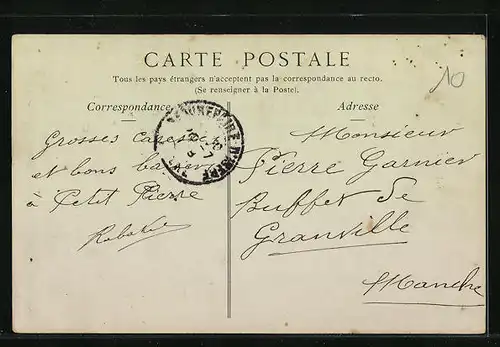 CARTE POSTALE
Tous les pays étrangers n'acceptent pas la correspondance au recto.
(Se renseigner à la Poste).
Correspondance
Adresse
10
Grosses caresses
et bons baisers
à Petit Pierre
Monsieur
Pierre Garnier
Buffet de
Granville
Manche